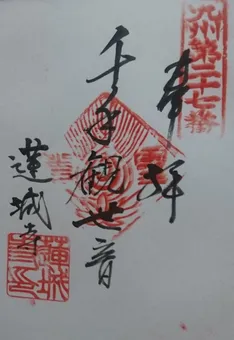 九州第二十七番
奉拝
千手観世音
蓮城寺
蓮城